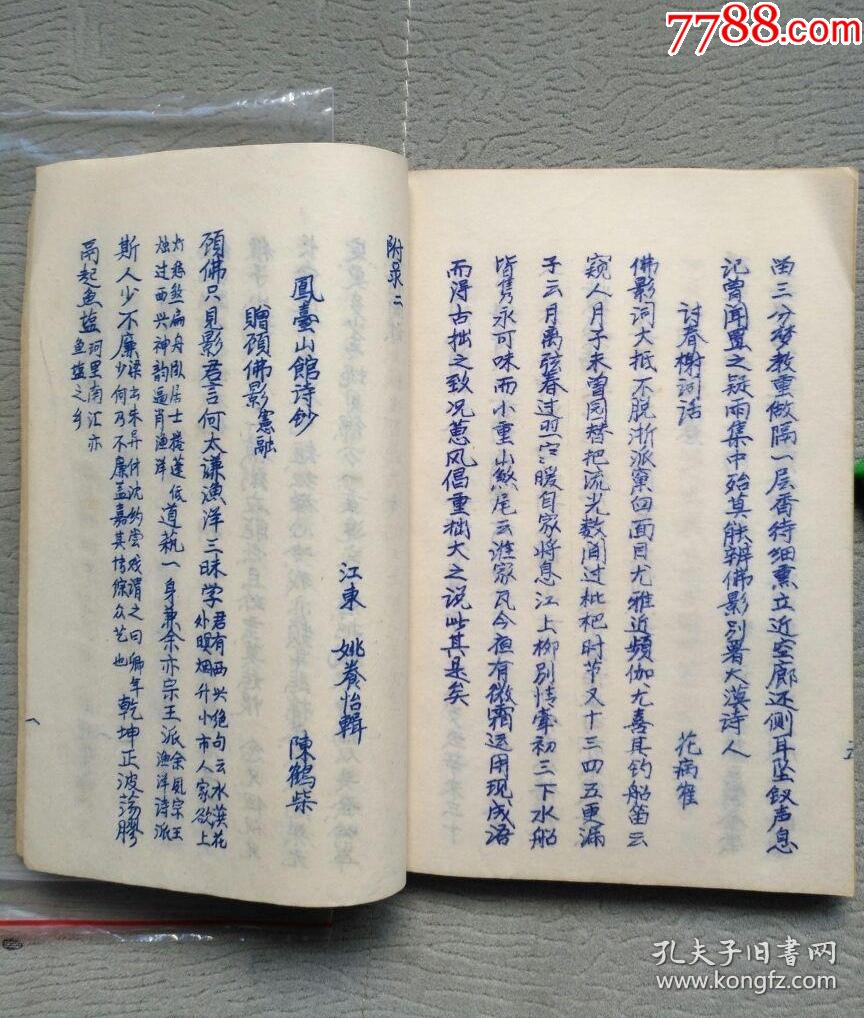 7788.com
曲三分梦教重做隔一层香待细熏立近空廊还侧耳坠钗声息
记曾闻置之疑雨集中殆莫能辨佛影别署大漠诗人
讨春榭词话
花病鹤
佛影词大抵不脱浙派窠臼面目尤雅近频伽尤喜其钓船笛云
窥人月子未曾园替把流光数闻过枇杷时节又十三四五更漏
子云月离弦春过翌空暖自家将息江上柳别情牵初三下水船
皆隽永可味而小重山煞尾云谁家瓦今夜有微霜运用现成语
而得古拙之致况蕙风倡重拙大之说此其是矣
附录二
鳳臺山館诗钞
江東 姚養怡輯
贈顾佛影憲融
陳鶴柴
顾佛只见影君言何太谦漁洋三昧学君有两兴绝句云水漠花
外暝烟升小市人家欲上
灯悬煞扁舟闲居士楼蓬低
烛过西兴神韵逼肖渔洋道藝一身兼余亦宗王派余夙宗王
渔洋诗派
斯人少不廉梁书朱异传沈约尝戏谓之曰卿年
少何乃不廉盖嘉其博综众艺也乾坤正波荡膠
鬲起鱼盐阿里南汇亦
鱼盐之乡
孔夫子旧书网
www.kongfz.com